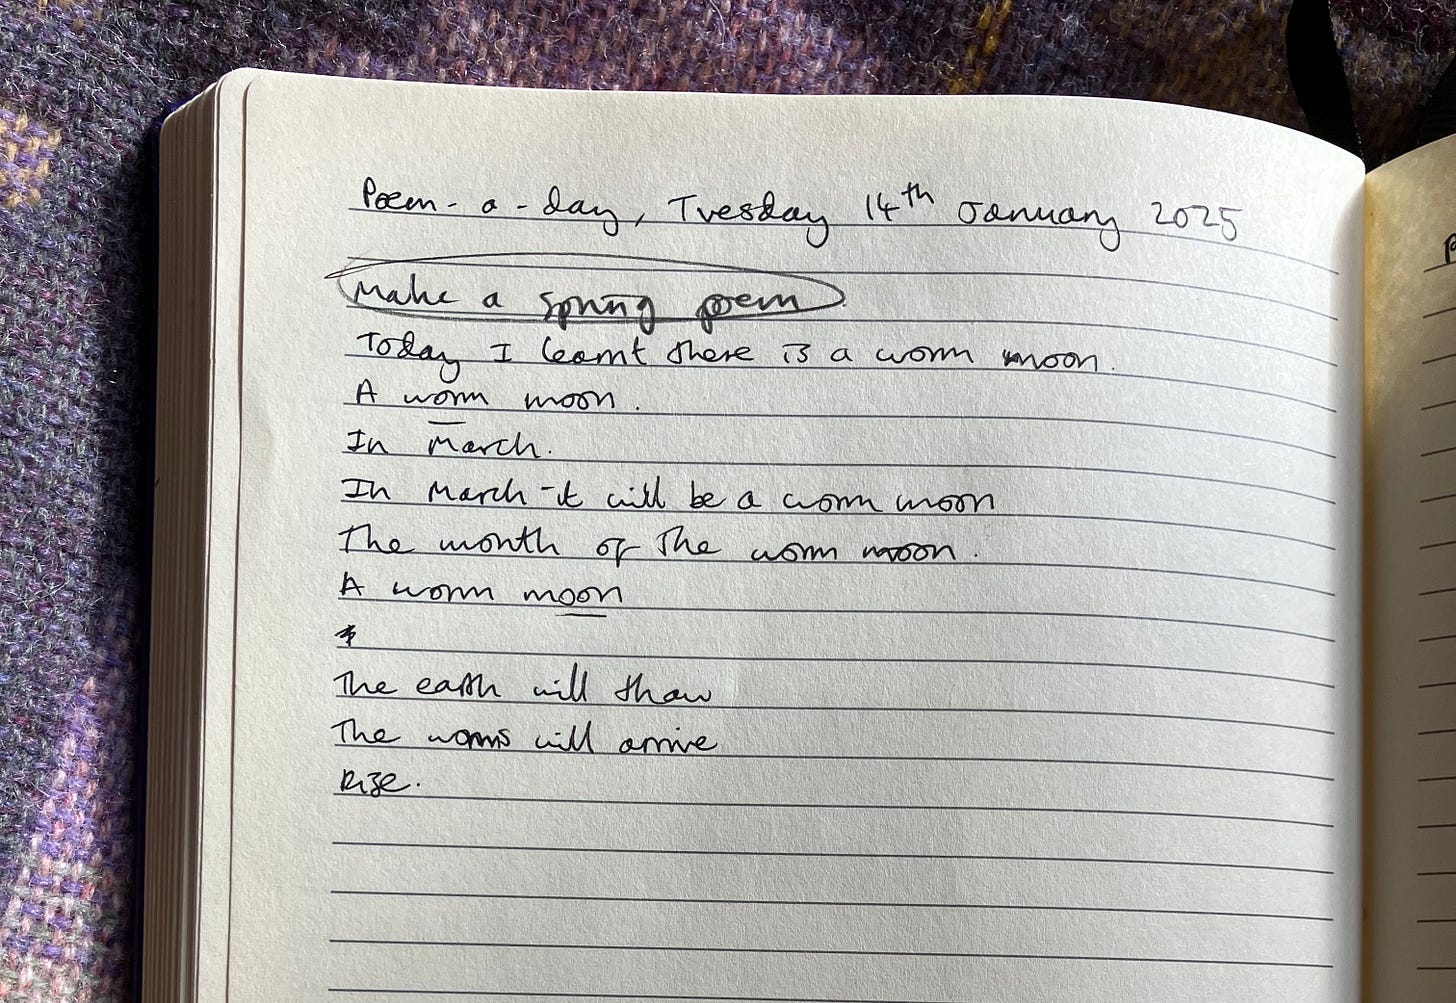 Poem-a-day, Tuesday 14th January 2025
Make a spring poem
Today I learnt there is a worm moon.
A worm moon.
In March.
In March - it will be a worm moon
The month of the worm moon.
A worm moon
*
The earth will thaw
The worms will arrive
Rise.